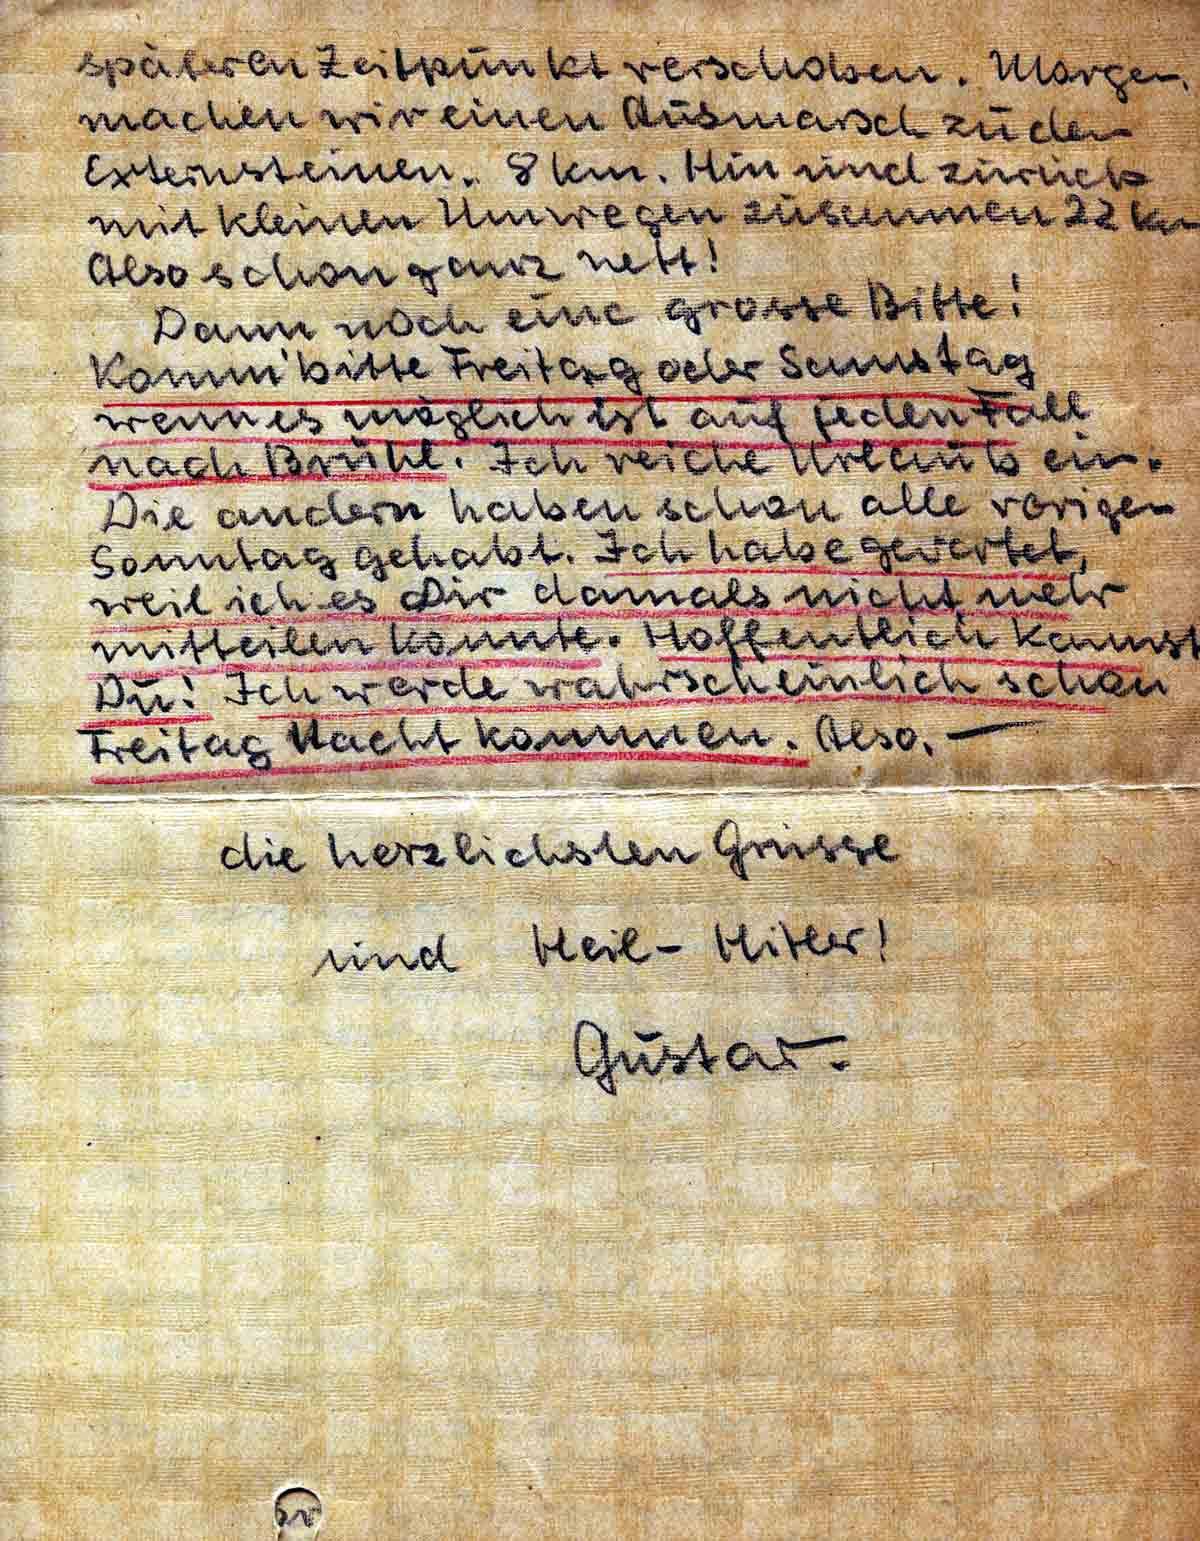 späteren Zeitpunkt verschoben. Morgen
machen wir einen Ausmarsch zu den
Externsteinen. 8 km. Hin und zurück
mit kleinen Umwegen zusammen 22 km
Also schon ganz nett!
Dann noch eine grosse Bitte!
Komm' bitte Freitag oder Samstag
wenn es möglich ist auf jeden Fall
nach Brühl. Ich reiche Urlaub ein.
Die andern haben schon alle vorigen
Sonntag gehabt. Ich habe gewartet,
weil ich es Dir damals nicht mehr
mitteilen konnte. Hoffentlich kannst
Du! Ich werde wahrscheinlich schon
Freitag Nacht kommen. Also. —
die herzlichsten Grüsse
und Heil-Hitler!
Gustav.